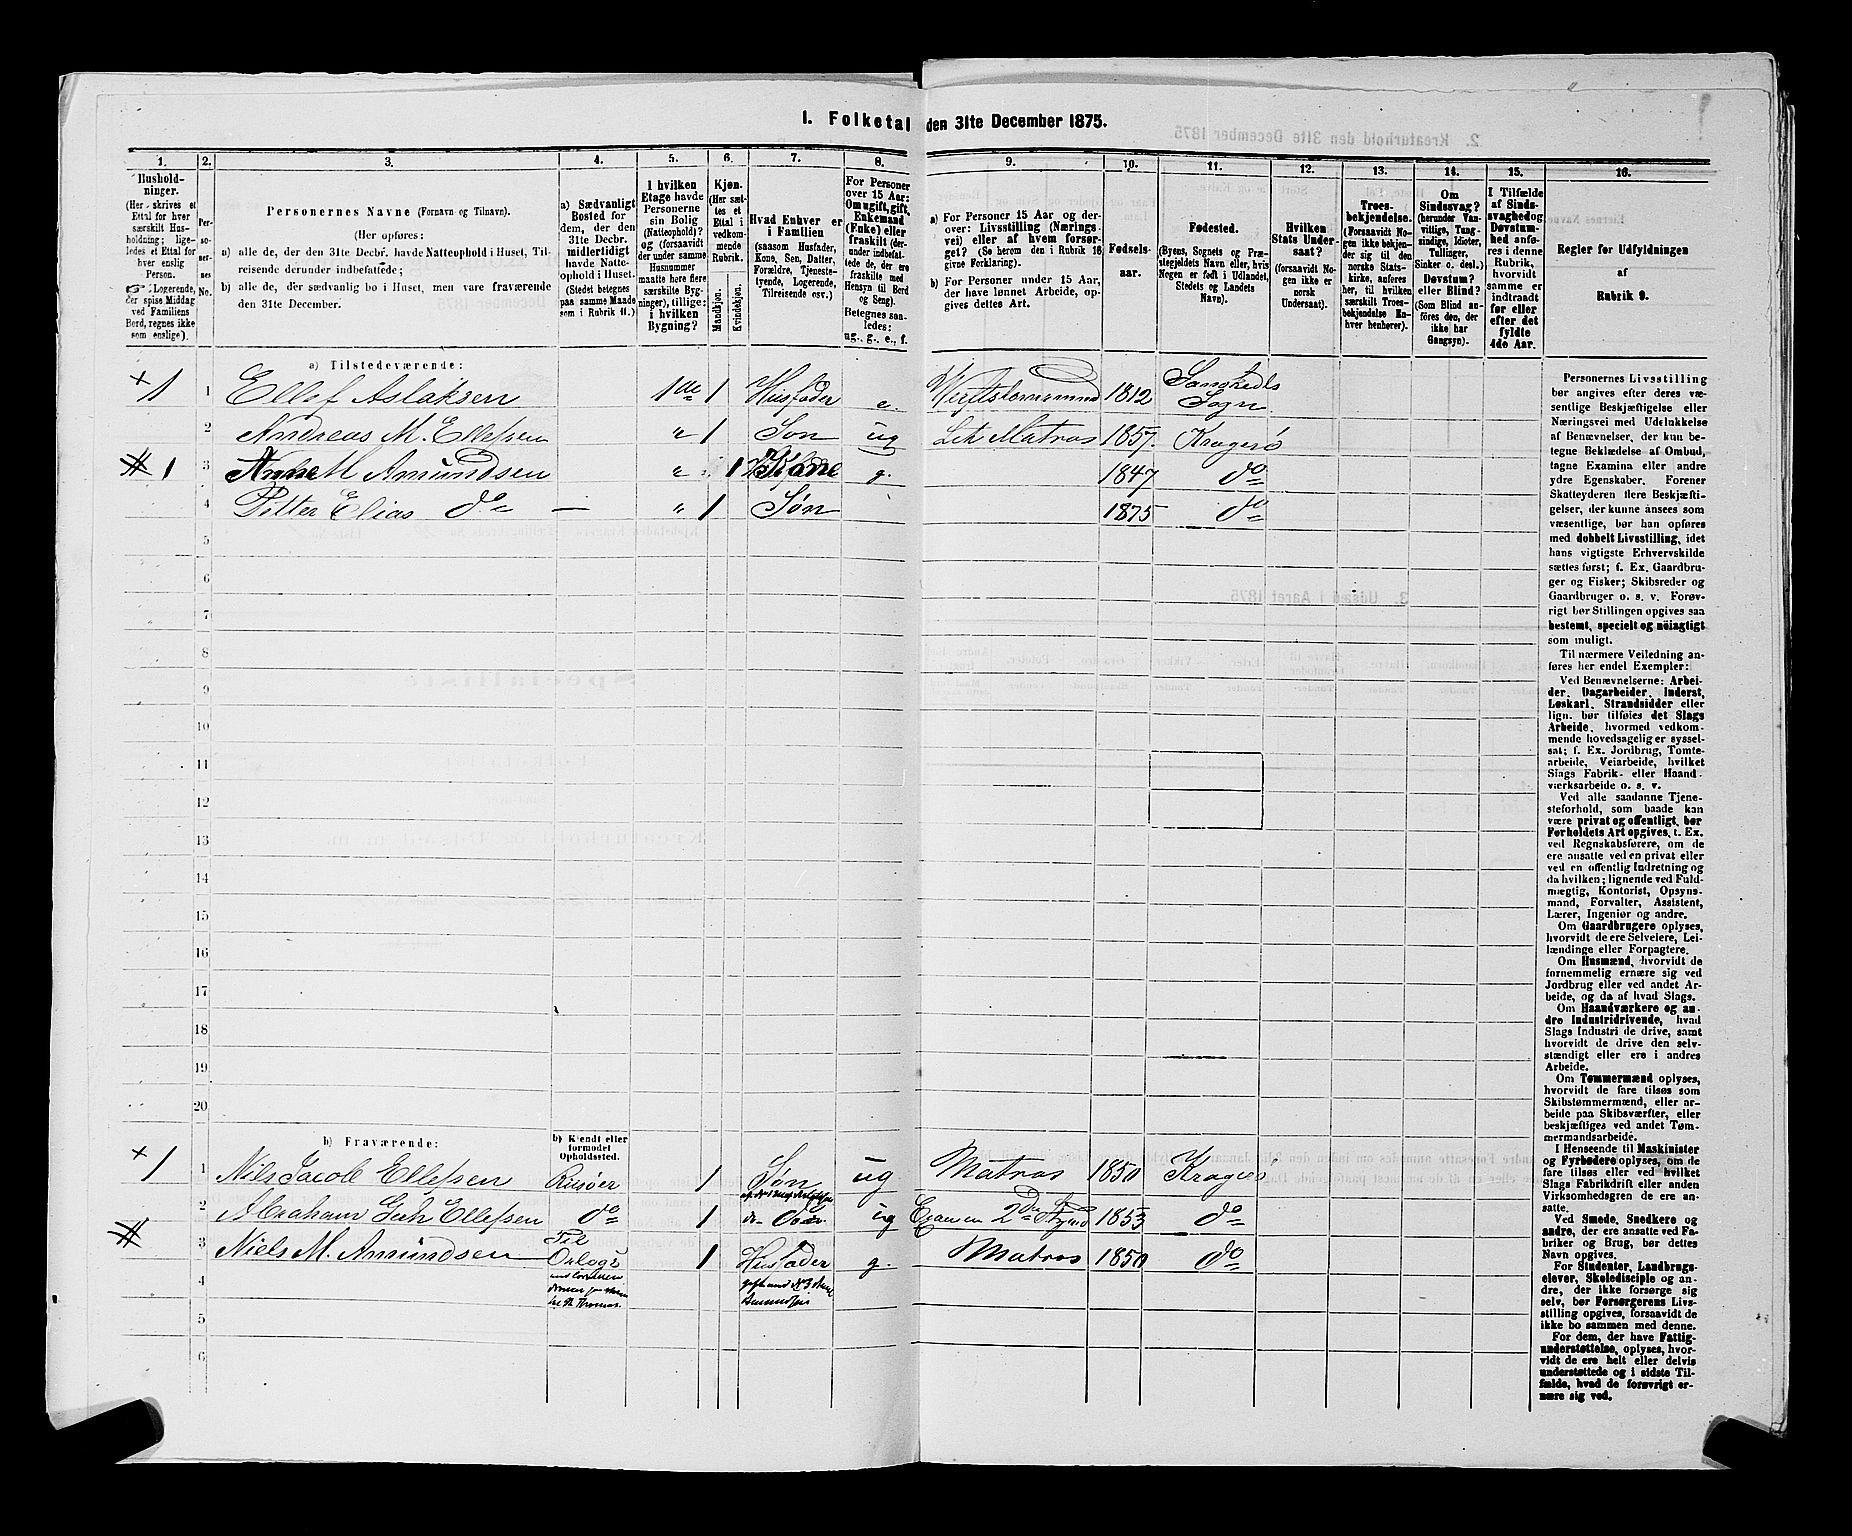 I. Folketal den 31te December 1875.
1. 2. 3. 4. 5. 6. 7. 8. 9. 10. 11. 12. 13. 14. 15. 16.
Hushold-
ninger.
(Her skrives et
Ettal for hver
særskilt Hus-
holdning; lige-
ledes et Ettal for
hver enslig
Person.
Logerende,
der spise Middag
ved Familiens
Bord, regnes ikke
som enslige).
Per-
so-
ner-
nes
No.
Personernes Navne (Fornavn og Tilnavn).
(Her opføres:
a) alle de, der den 31te Decbr. havde Natteophold i Huset, Til-
reisende derunder indbefattede;
b) alle de, der sædvanlig bo i Huset, men vare fraværende
den 31te December.
a) Sædvanligt
Bosted for
dem, der den
31te Decbr.
midlertidigt
havde Natte-
ophold i Huset.
(Stedet betegnes
paa samme Maade
som i Rubrik 11.)
I hvilken
Etage havde
Personerne
sin Bolig
(Natteophold)?
og (forsaavidt
der under samme
Husnummer
maatte høre flere
særskilte Byg-
ninger), tillige:
i hvilken
Bygning?
Kjøn.
(Her sæt-
tes et
Ettal i
vedkom-
mende
Rubrik.
Mandkjøn.
Kvindekjøn.
Hvad Enhver er
i Familien
(saasom Husfader,
Kone, Søn, Datter,
Forældre, Tjeneste-
tyende, Logerende,
Tilreisende osv.)
For Personer
over 15 Aar:
Om ugift, gift,
Enkemand
(Enke) eller
fraskilt (der-
under indbefat-
tede de, der ere
fraskilte med
Hensyn til Bord
og Seng).
Betegnes saa-
ledes:
ug., g., e., f.
a) For Personer 15 Aar og der-
over: Livsstilling (Nærings-
vei) eller af hvem forsør-
get? (Se herom den i Rubrik 16
givne Forklaring).
b) For Personer under 15 Aar,
der have lønnet Arbeide, op-
gives dettes Art.
Fødsels-
aar.
Fødested.
(Byens, Sognets og Præ-
stegjeldets Navn eller, hvis
Nogen er født i Udlandet,
Stedets og Landets
Navn).
Hvilken
Stats Under-
saat?
(forsaavidt No-
gen ikke er
norsk
Undersaat).
Troes-
bekjendelse.
(Forsaavidt No-
gen ikke bekjen-
der sig til den
norske Stats-
kirke, anføres
her, til hvilken
særskilt Troes-
bekjendelse En-
hver henhører).
Om
Sindssvag?
(herunder Van-
vittige, Tung-
sindige, Idioter,
Tullinger,
Sinker o. desl.)
Døvstum?
eller Blind?
(Som Blind an-
føres den, der
ikke har
Gangsyn).
I Tilfælde
af Sinds-
svaghed og
Døvstum-
hed anfø-
res i denne
Rubrik,
hvorvidt
samme er
indtraadt
før eller
efter det
fyldte
4de Aar.
Regler for Udfyldningen
af
Rubrik 9.
a) Tilstedeværende:
1 1 Ellef Aslaksen 1de 1 Husfader e. 1812 Sannikedls
Sogn
2 Andreas M. Ellefsen " 1 Søn ug Let Matros 1857. Kragerø
1 3 Anne M Amundsen " 1 Kone g. 1847 do
4 Petter Elias do — " 1 Søn 1875 do
5
6
7
8
9
10
11
12
13
14
15
16
17
18
19
20
b) Fraværende:
b) Kjendt eller
formodet
Opholdssted.
1 1 Nils Jacob Ellefsen Risøer 1 Søn ug Matros 1850 Kragerø
2 Abraham Ellefsen do 1 do ug Examen 2den Styrmd 1853 do
3 Niels M. Amundsen Til
Orlogs 1 Husfader g. Matros 1850 do
4 gift med N 3 Anne
Amundsen
5
6
Personernes Livsstilling
bør angives efter deres væ-
sentlige Beskjæftigelse eller
Næringsvei med Udelukkelse
af Benævnelser, der kun be-
tegne Beklædelse af Ombud,
tagne Examina eller andre
ydre Egenskaber. Forener
Skatteyderen flere Beskjæfti-
gelser, der kunne ansees som
væsentlige, bør han opføres
med dobbelt Livsstilling, idet
hans vigtigste Erhvervskilde
sættes først; f. Ex. Gaardbru-
ger og Fisker; Skibsreder og
Gaardbruger o. s. v. Forøv-
rigt bør Stillingen opgives saa
bestemt, specielt og nøiagtigt
som muligt.
Til nærmere Veiledning an-
føres her endel Exempler:
Ved Benævnelserne: Arbei-
der, Dagarbeider, Inderst,
Løskarl, Strandsidder eller
lign. bør tilføies det Slags
Arbeide, hvormed vedkom-
mende hovedsagelig er syssel-
sat; f. Ex. Jordbrug, Tomte-
arbeide, Veiarbeide, hvilket
Slags Fabrik- eller Haand-
værksarbeide o. s. v.
Ved alle saadanne Tjene-
steforhold, som baade kan
være privat og offentligt, bør
Forholdets Art opgives, t. Ex.
ved Regnskabsførere, om de
ere ansatte ved en privat eller
ved en offentlig Indretning og
da hvilken; lignende ved Fuld-
mægtig, Kontorist, Opsyns-
mand, Forvalter, Assistent,
Lærer, Ingeniør og andre.
Om Gaardbrugere oplyses,
hvorvidt de ere Selveiere, Lei-
lændinge eller Forpagtere.
Om Husmænd, hvorvidt de
fornemmelig ernære sig ved
Jordbrug eller ved andet Ar-
beide, og da af hvad Slags.
Om Haandværkere og an-
dre Industridrivende, hvad
Slags Industri de drive, samt
hvorvidt de drive den selv-
stændigt eller ere i andres
Arbeide.
Om Tømmermænd oplyses,
hvorvidt de fare tilsøs som
Skibstømmermænd, eller ar-
beide paa Skibsværfter, eller
beskjæftiges ved andet Tøm-
mermandsarbeide.
I Henseende til Maskinister
og Fyrbødere oplyses, om de
fare tilsøs eller ved hvilket
Slags Fabrikdrift eller anden
Virksomhedsgren de ere an-
satte.
Ved Smede, Snedkere og
andre, der ere ansatte ved Fa-
briker og Brug, bør dettes
Navn opgives.
For Studenter, Landbrugs-
elever, Skoledisciple og an-
dre, der ikke forsørge sig
selv, bør Forsørgerens Livs-
stilling opgives, forsaavidt de
ikke bo sammen med denne.
For dem, der have Fattig-
understøttelse, oplyses, hvor-
vidt de ere helt eller delvis
understøttede og i sidste Til-
fælde, hvad de forøvrigt er-
nære sig ved.